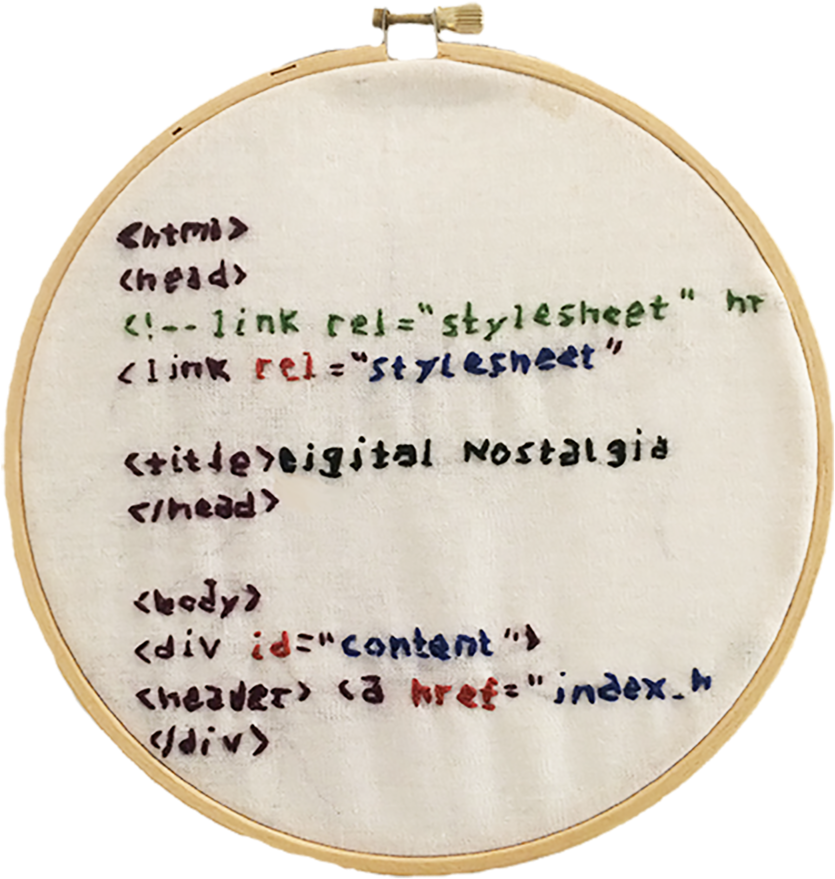 <html>
<head>
<!--link rel="stylesheet" hr
<link rel="stylesheet"
<title>Digital Nostalgia
</head>
<body>
<div id="content">
<header> <a href="index.h
</div>